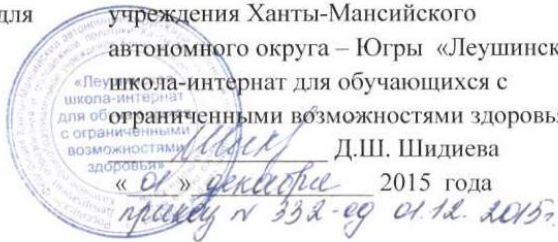 для учреждения Ханты-Мансийского
автономного округа – Югры «Леушинск
школа-интернат для обучающихся с
ограниченными возможностями здоровь
Д.Ш. Шидиева
« 01 » декабря 2015 года
приказ № 332-од 01.12.2015г.
«Леушинская
школа-интернат
для обучающихся
с ограниченными
возможностями
здоровья»